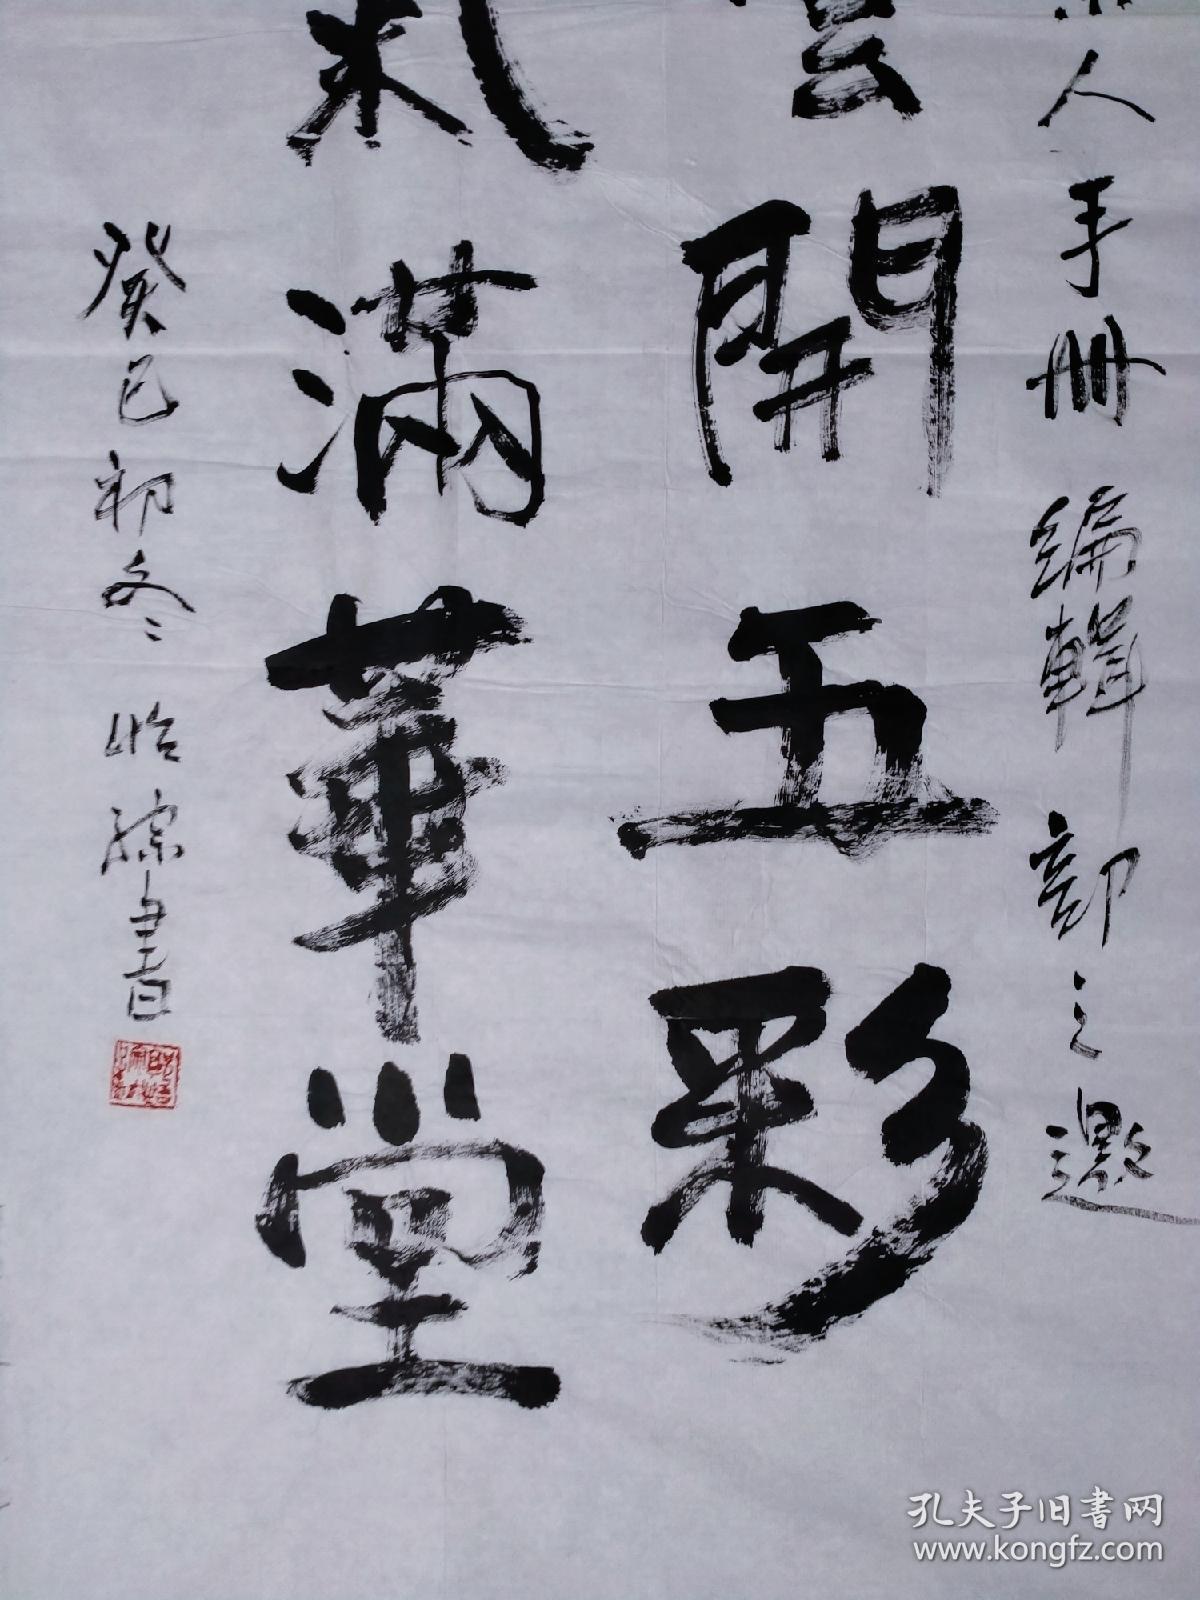 人手册编辑部之邀
雲開五彩
氣滿華堂
癸巳初冬 書
孔夫子旧书网
www.kongfz.com